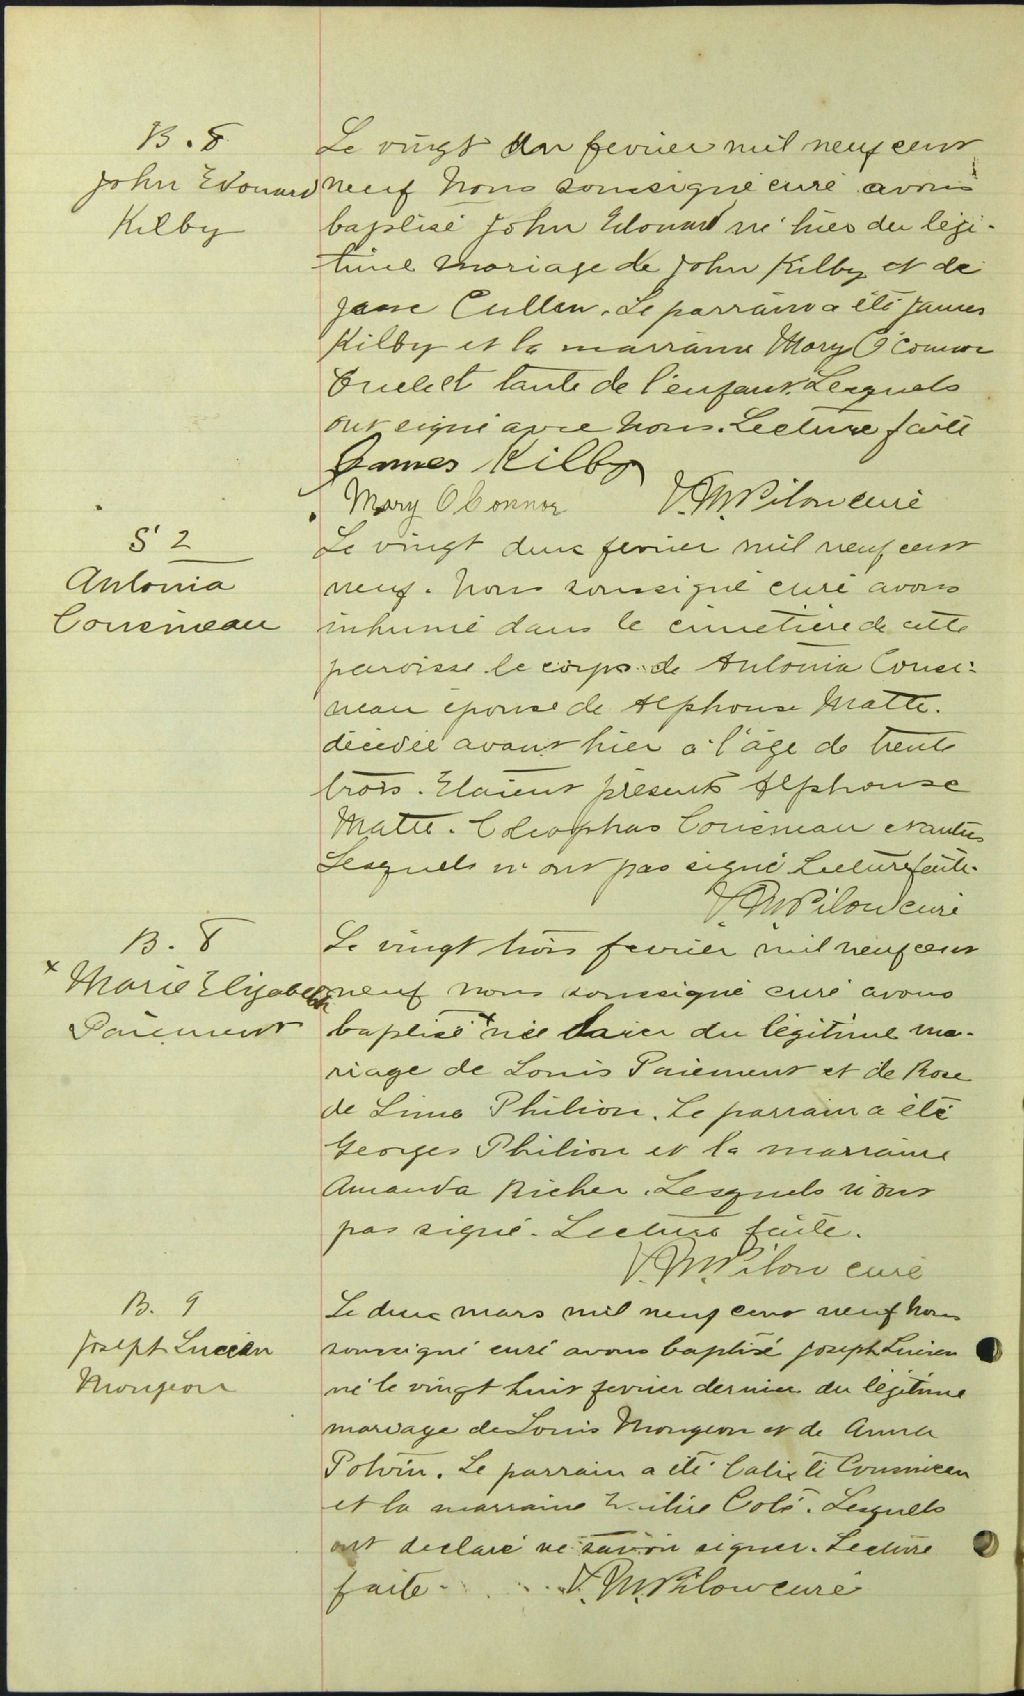 B. 8
John Edouard
Kilby
Le vingt un fevrier mil neuf cent
neuf Nous soussigné curé avons
baptisé John Edouard né hier du légi-
time mariage de John Kilby et de
Jane Cullen. Le parrain a été James
Kilby et la marraine Mary O'Connor
Oncle et tante de l'enfant. Lesquels
ont signé avec nous. Lecture faite
James Kilby
Mary O Connor V. M. Pilon curé
S 2
Antonia
Cousineau
Le vingt deux fevrier mil neuf cent
neuf. Nous soussigné curé avons
inhumé dans le cimetière de cette
paroisse le corps de Antonia Cousi-
neau épouse de Alphonse Matte.
décédée avant hier à l'âge de trente
trois. Etaient présents Alphonse
Matte. Cléophas Cousineau et autres
Lesquels n'ont pas signé Lecture faite.
V. M. Pilon curé
B. 8
x Marie Elizabeth
Paiement
Le vingt trois fevrier mil neuf cent
neuf nous soussigné curé avons
baptisé x née hier du légitime ma-
riage de Louis Paiement et de Rose
de Lima Philion. Le parrain a été
Georges Philion et la marraine
Amanda Richer. Lesquels n'ont
pas signé. Lecture faite.
V. M. Pilon curé
B. 9
Joseph Lucien
Mongeon
Le deux mars mil neuf cent neuf nous
soussigné curé avons baptisé Joseph Lucien
né le vingt huit fevrier dernier du légitime
mariage de Louis Mongeon et de Anna
Potvin. Le parrain a été Calixte Cousineau
et la marraine Coté. Lesquels
ont declaré ne savoir signer. Lecture
faite. V. M. Pilon curé